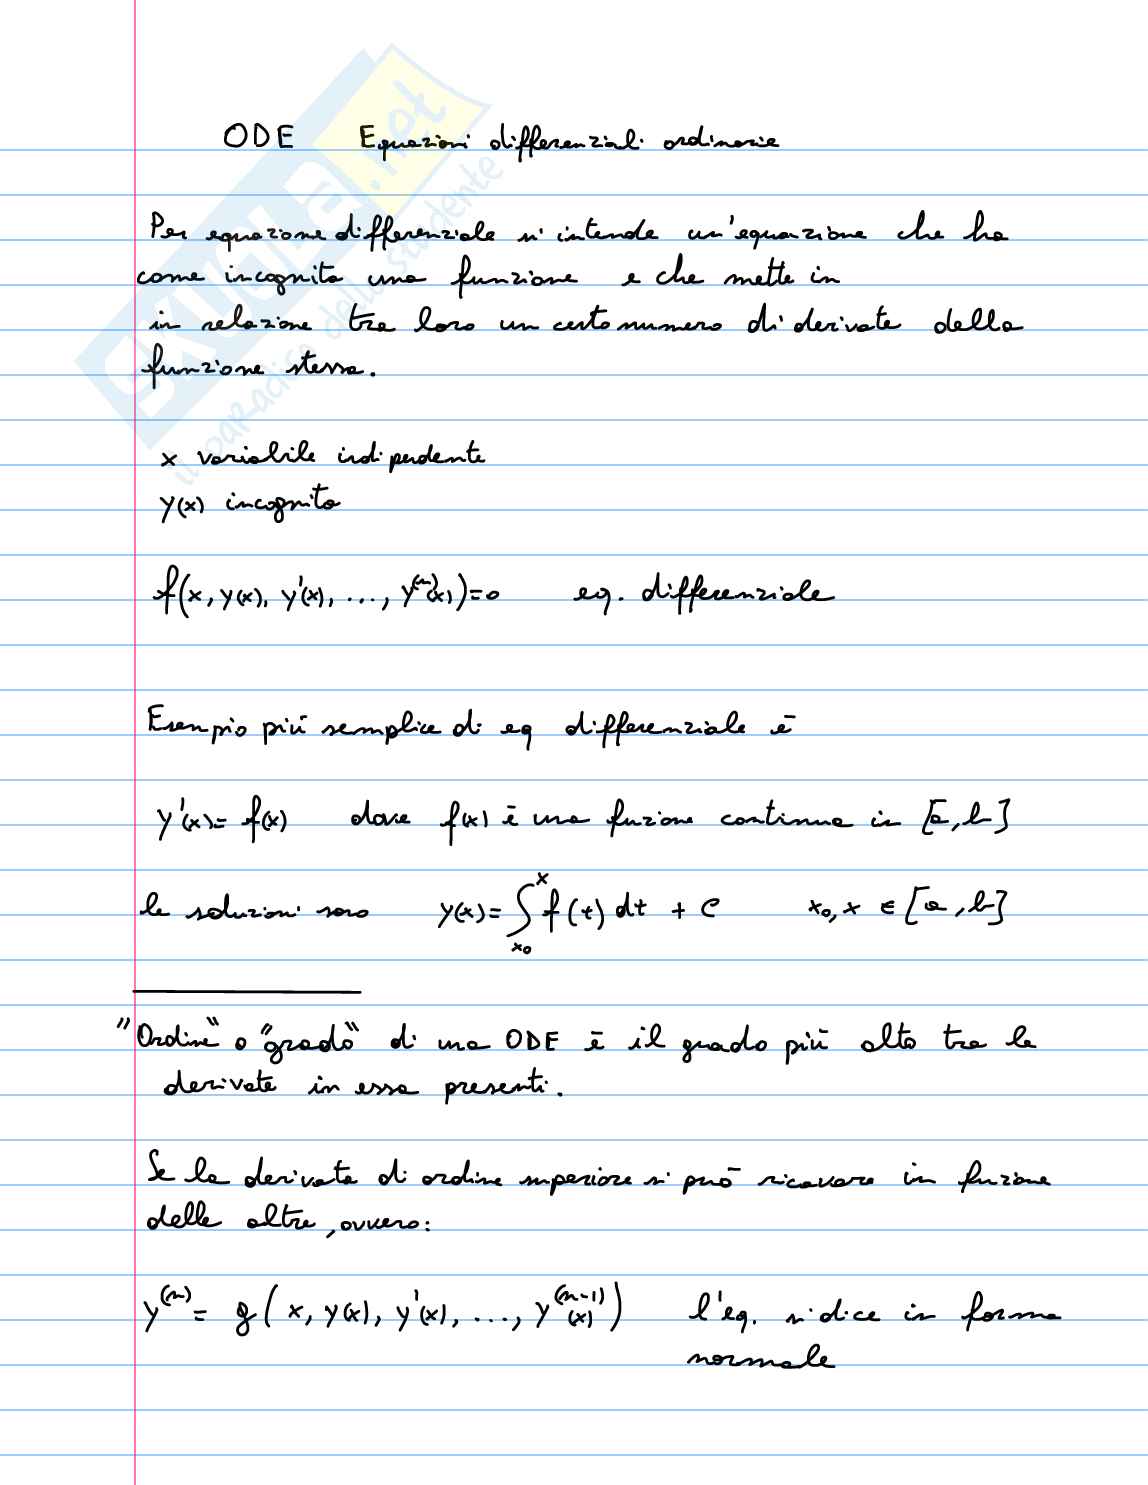 ODE Equazioni differenziali ordinarie
Per equazione differenziale si intende un'equazione che ha
come incognita una funzione e che mette in
in relazione tra loro un certo numero di derivate della
funzione stessa.
x variabile indipendente
y(x) incognita
f(x, y(x), y'(x), ..., y⁽ⁿ⁾(x))=0 eq. differenziale
Esempio più semplice di eq differenziale è
y'(x)= f(x) dove f(x) è una fuzione continua in [a,b]
le soluzioni sono y(x)= ∫_{x₀}^{x} f(t) dt + C x₀,x ∈ [a,b]
"Ordine" o "grado" di una ODE è il grado più alto tra le
derivate in essa presenti.
Se la derivata di ordine superiore si può ricavare in funzione
delle altre, ovvero:
y⁽ⁿ⁾= g(x, y(x), y'(x), ..., y⁽ⁿ⁻¹⁾(x)) l'eq. si dice in forma
normale
SKUOLA.net
il paradiso dello studente